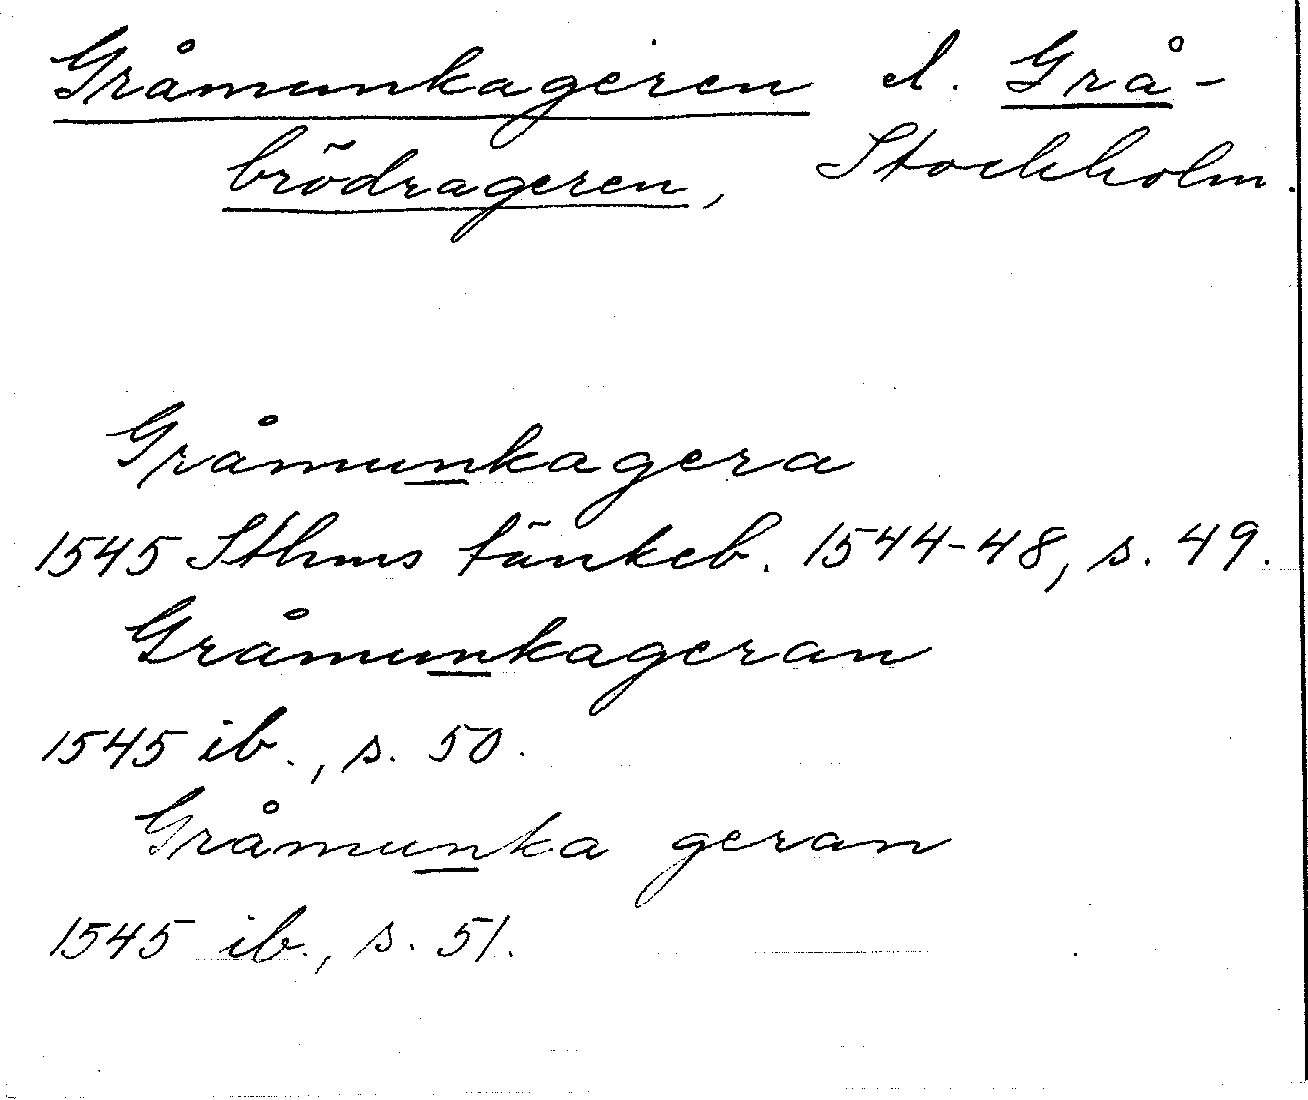 Gråmunkageren el. Grå-
brödrageren, Stockholm.
Gråmunkagera
1545 Sthms tänkeb. 1544-48, s. 49.
Gråmunkageran
1545 ib., s. 50.
Gråmunka geran
1545 ib., s. 51.